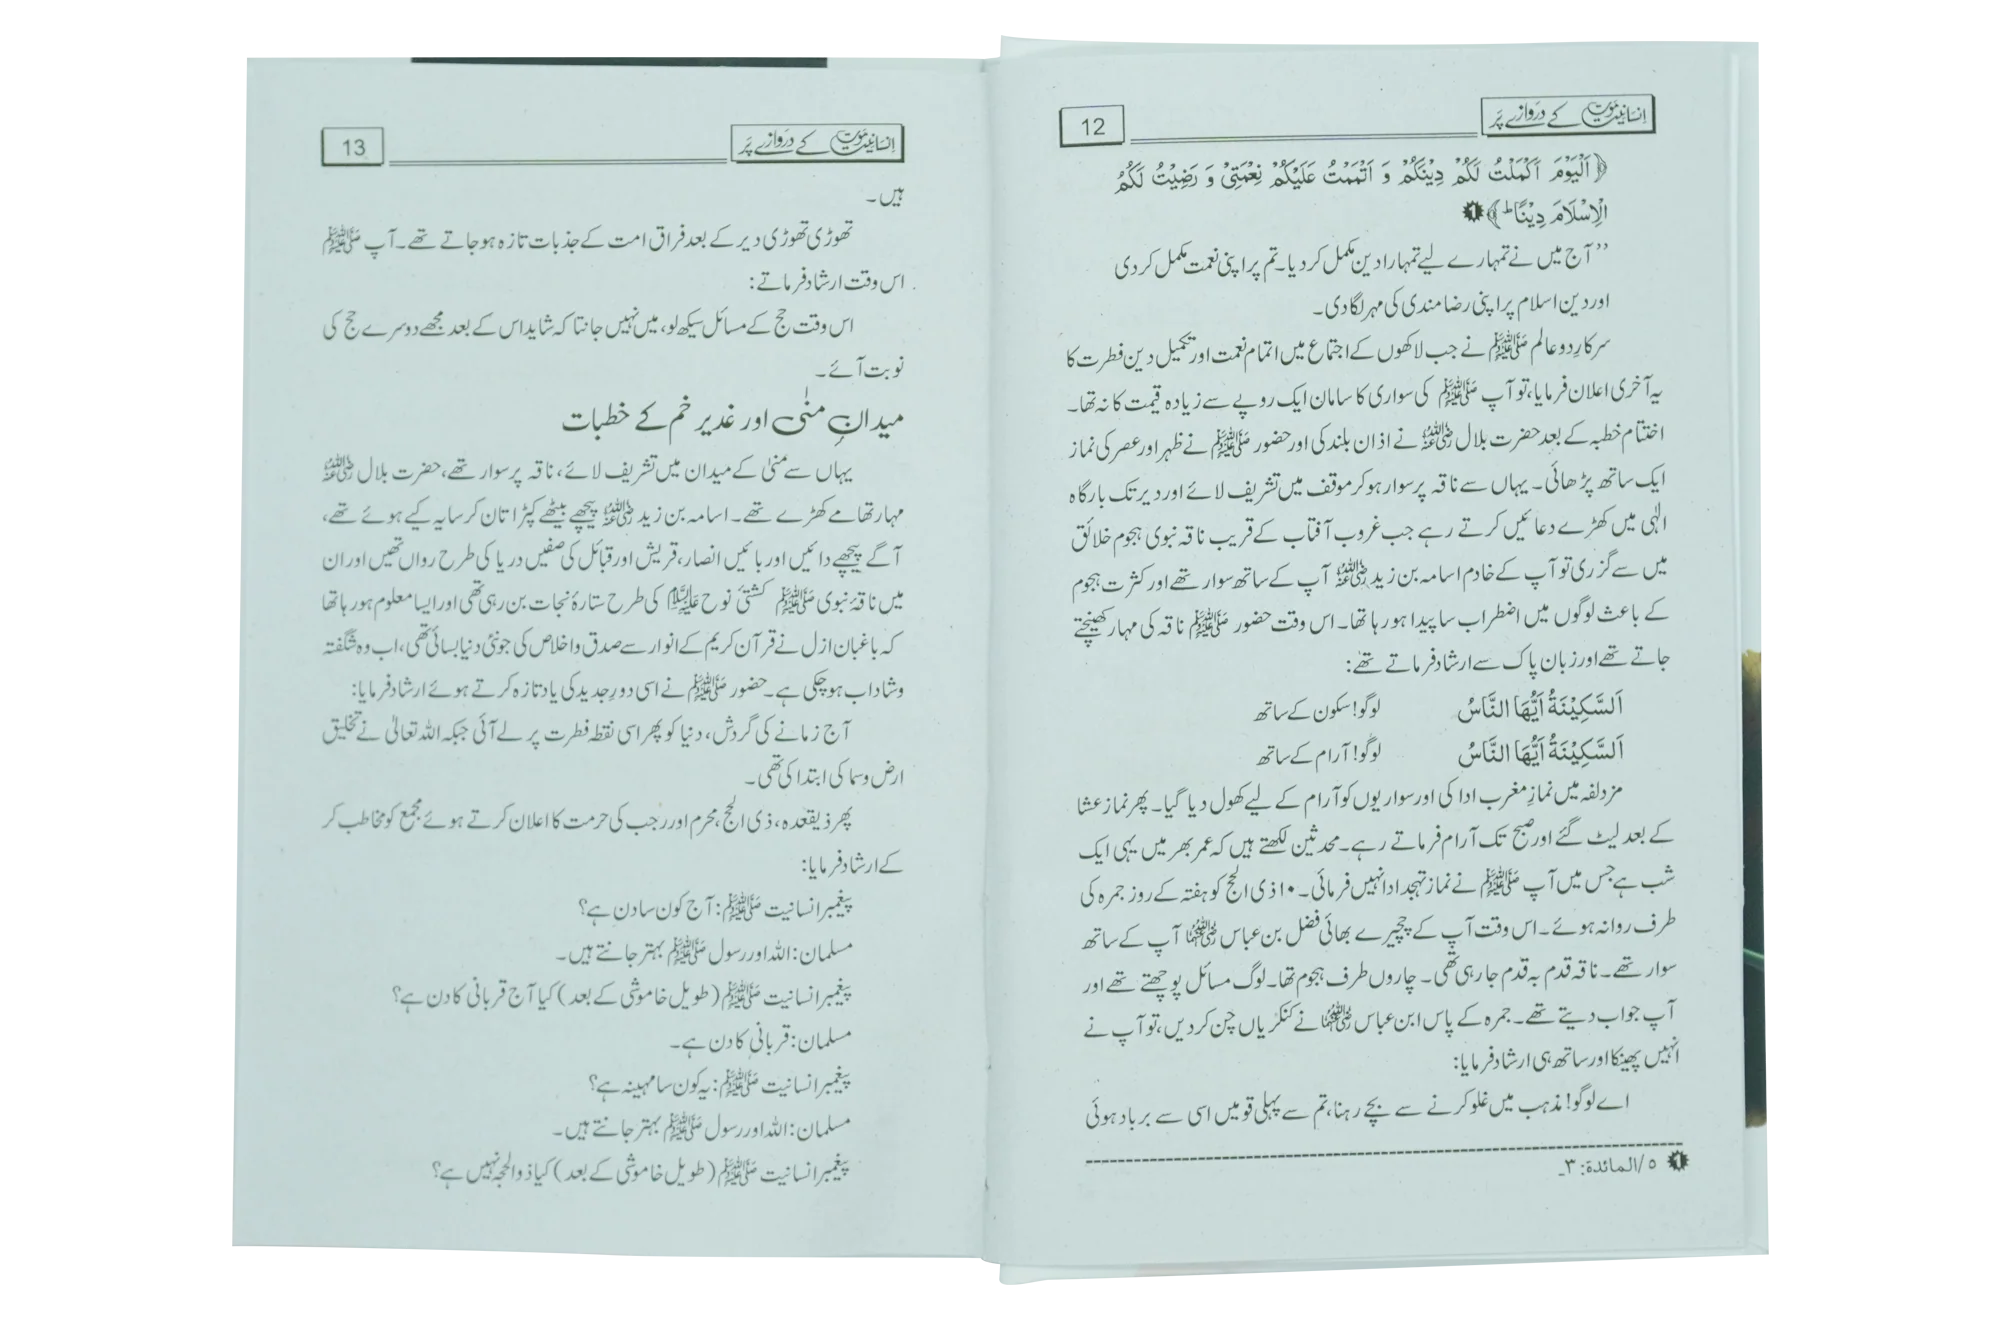 انسانیت موت کے دروازے پر
12
﴿اَلْيَوْمَ اَكْمَلْتُ لَكُمْ دِيْنَكُمْ وَ اَتْمَمْتُ عَلَيْكُمْ نِعْمَتِيْ وَ رَضِيْتُ لَكُمُ
الْاِسْلَامَ دِيْنًا ؕ﴾ ❶
’’آج میں نے تمہارے لیے تمہارا دین مکمل کر دیا۔ تم پر اپنی نعمت مکمل کر دی
اور دین اسلام پر اپنی رضامندی کی مہر لگا دی۔
سرکارِ دو عالم ﷺ نے جب لاکھوں کے اجتماع میں اتمام نعمت اور تکمیل دین فطرت کا
یہ آخری اعلان فرمایا، تو آپ ﷺ کی سواری کا سامان ایک روپے سے زیادہ قیمت کا نہ تھا۔
اختتام خطبہ کے بعد حضرت بلال رضی اللہ عنہ نے اذان بلند کی اور حضور ﷺ نے ظہر اور عصر کی نماز
ایک ساتھ پڑھائی۔ یہاں سے ناقہ پر سوار ہو کر موقف میں تشریف لائے اور دیر تک بارگاہ
الٰہی میں کھڑے دعائیں کرتے رہے جب غروب آفتاب کے قریب ناقہ نبوی ہجوم خلائق
میں سے گزری تو آپ کے خادم اسامہ بن زید رضی اللہ عنہ آپ کے ساتھ سوار تھے اور کثرت ہجوم
کے باعث لوگوں میں اضطراب سا پیدا ہو رہا تھا۔ اس وقت حضور ﷺ ناقہ کی مہار کھینچتے
جاتے تھے اور زبان پاک سے ارشاد فرماتے تھے:
اَلسَّكِيْنَةُ اَيُّهَا النَّاسُ لوگو! سکون کے ساتھ
اَلسَّكِيْنَةُ اَيُّهَا النَّاسُ لوگو! آرام کے ساتھ
مزدلفہ میں نمازِ مغرب ادا کی اور سواریوں کو آرام کے لیے کھول دیا گیا۔ پھر نماز عشا
کے بعد لیٹ گئے اور صبح تک آرام فرماتے رہے۔ محدثین لکھتے ہیں کہ عمر بھر میں یہی ایک
شب ہے جس میں آپ ﷺ نے نماز تہجد ادا نہیں فرمائی۔ ۱۰ ذی الحج کو ہفتہ کے روز جمرہ کی
طرف روانہ ہوئے۔ اس وقت آپ کے چچیرے بھائی فضل بن عباس رضی اللہ عنہما آپ کے ساتھ
سوار تھے۔ ناقہ قدم بہ قدم جا رہی تھی۔ چاروں طرف ہجوم تھا۔ لوگ مسائل پوچھتے تھے اور
آپ جواب دیتے تھے۔ جمرہ کے پاس ابن عباس رضی اللہ عنہما نے کنکریاں چن کر دیں، تو آپ نے
انہیں پھینکا اور ساتھ ہی ارشاد فرمایا:
اے لوگو! مذہب میں غلو کرنے سے بچے رہنا، تم سے پہلی قومیں اسی سے برباد ہوئی
❶ ٥/المائدة: ٣۔
انسانیت موت کے دروازے پر
13
ہیں۔
تھوڑی تھوڑی دیر کے بعد فراق امت کے جذبات تازہ ہو جاتے تھے۔ آپ ﷺ
اس وقت ارشاد فرماتے:
اس وقت حج کے مسائل سیکھ لو، میں نہیں جانتا کہ شاید اس کے بعد مجھے دوسرے حج کی
نوبت آئے۔
میدانِ منٰی اور غدیر خم کے خطبات
یہاں سے منیٰ کے میدان میں تشریف لائے، ناقہ پر سوار تھے، حضرت بلال رضی اللہ عنہ
مہار تھامے کھڑے تھے۔ اسامہ بن زید رضی اللہ عنہ پیچھے بیٹھے کپڑا تان کر سایہ کیے ہوئے تھے،
آگے پیچھے دائیں اور بائیں انصار، قریش اور قبائل کی صفیں دریا کی طرح رواں تھیں اور ان
میں ناقۂ نبوی ﷺ کشتئ نوح علیہ السلام کی طرح ستارۂ نجات بن رہی تھی اور ایسا معلوم ہو رہا تھا
کہ باغبان ازل نے قرآن کریم کے انوار سے صدق و اخلاص کی جو نئی دنیا بسائی تھی، اب وہ شگفتہ
وشاداب ہو چکی ہے۔ حضور ﷺ نے اسی دورِ جدید کی یاد تازہ کرتے ہوئے ارشاد فرمایا:
آج زمانے کی گردش، دنیا کو پھر اسی نقطہ فطرت پر لے آئی جبکہ اللہ تعالیٰ نے تخلیق
ارض وسما کی ابتدا کی تھی۔
پھر ذیقعدہ، ذی الحج، محرم اور رجب کی حرمت کا اعلان کرتے ہوئے مجمع کو مخاطب کر
کے ارشاد فرمایا:
پیغمبر انسانیت ﷺ: آج کون سا دن ہے؟
مسلمان: اللہ اور رسول ﷺ بہتر جانتے ہیں۔
پیغمبر انسانیت ﷺ (طویل خاموشی کے بعد) کیا آج قربانی کا دن ہے؟
مسلمان: قربانی کا دن ہے۔
پیغمبر انسانیت ﷺ: یہ کون سا مہینہ ہے؟
مسلمان: اللہ اور رسول ﷺ بہتر جانتے ہیں۔
پیغمبر انسانیت ﷺ (طویل خاموشی کے بعد) کیا ذوالحجہ نہیں ہے؟